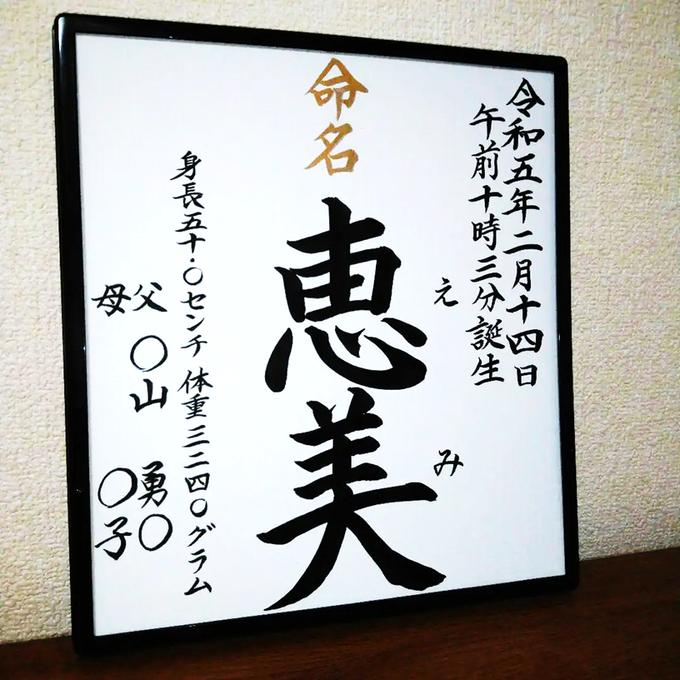 令和五年二月十四日
午前十時三分誕生
えみ
命名
恵美
身長五十・〇センチ 体重三二四〇グラム
父 〇山 勇〇
母 〇子